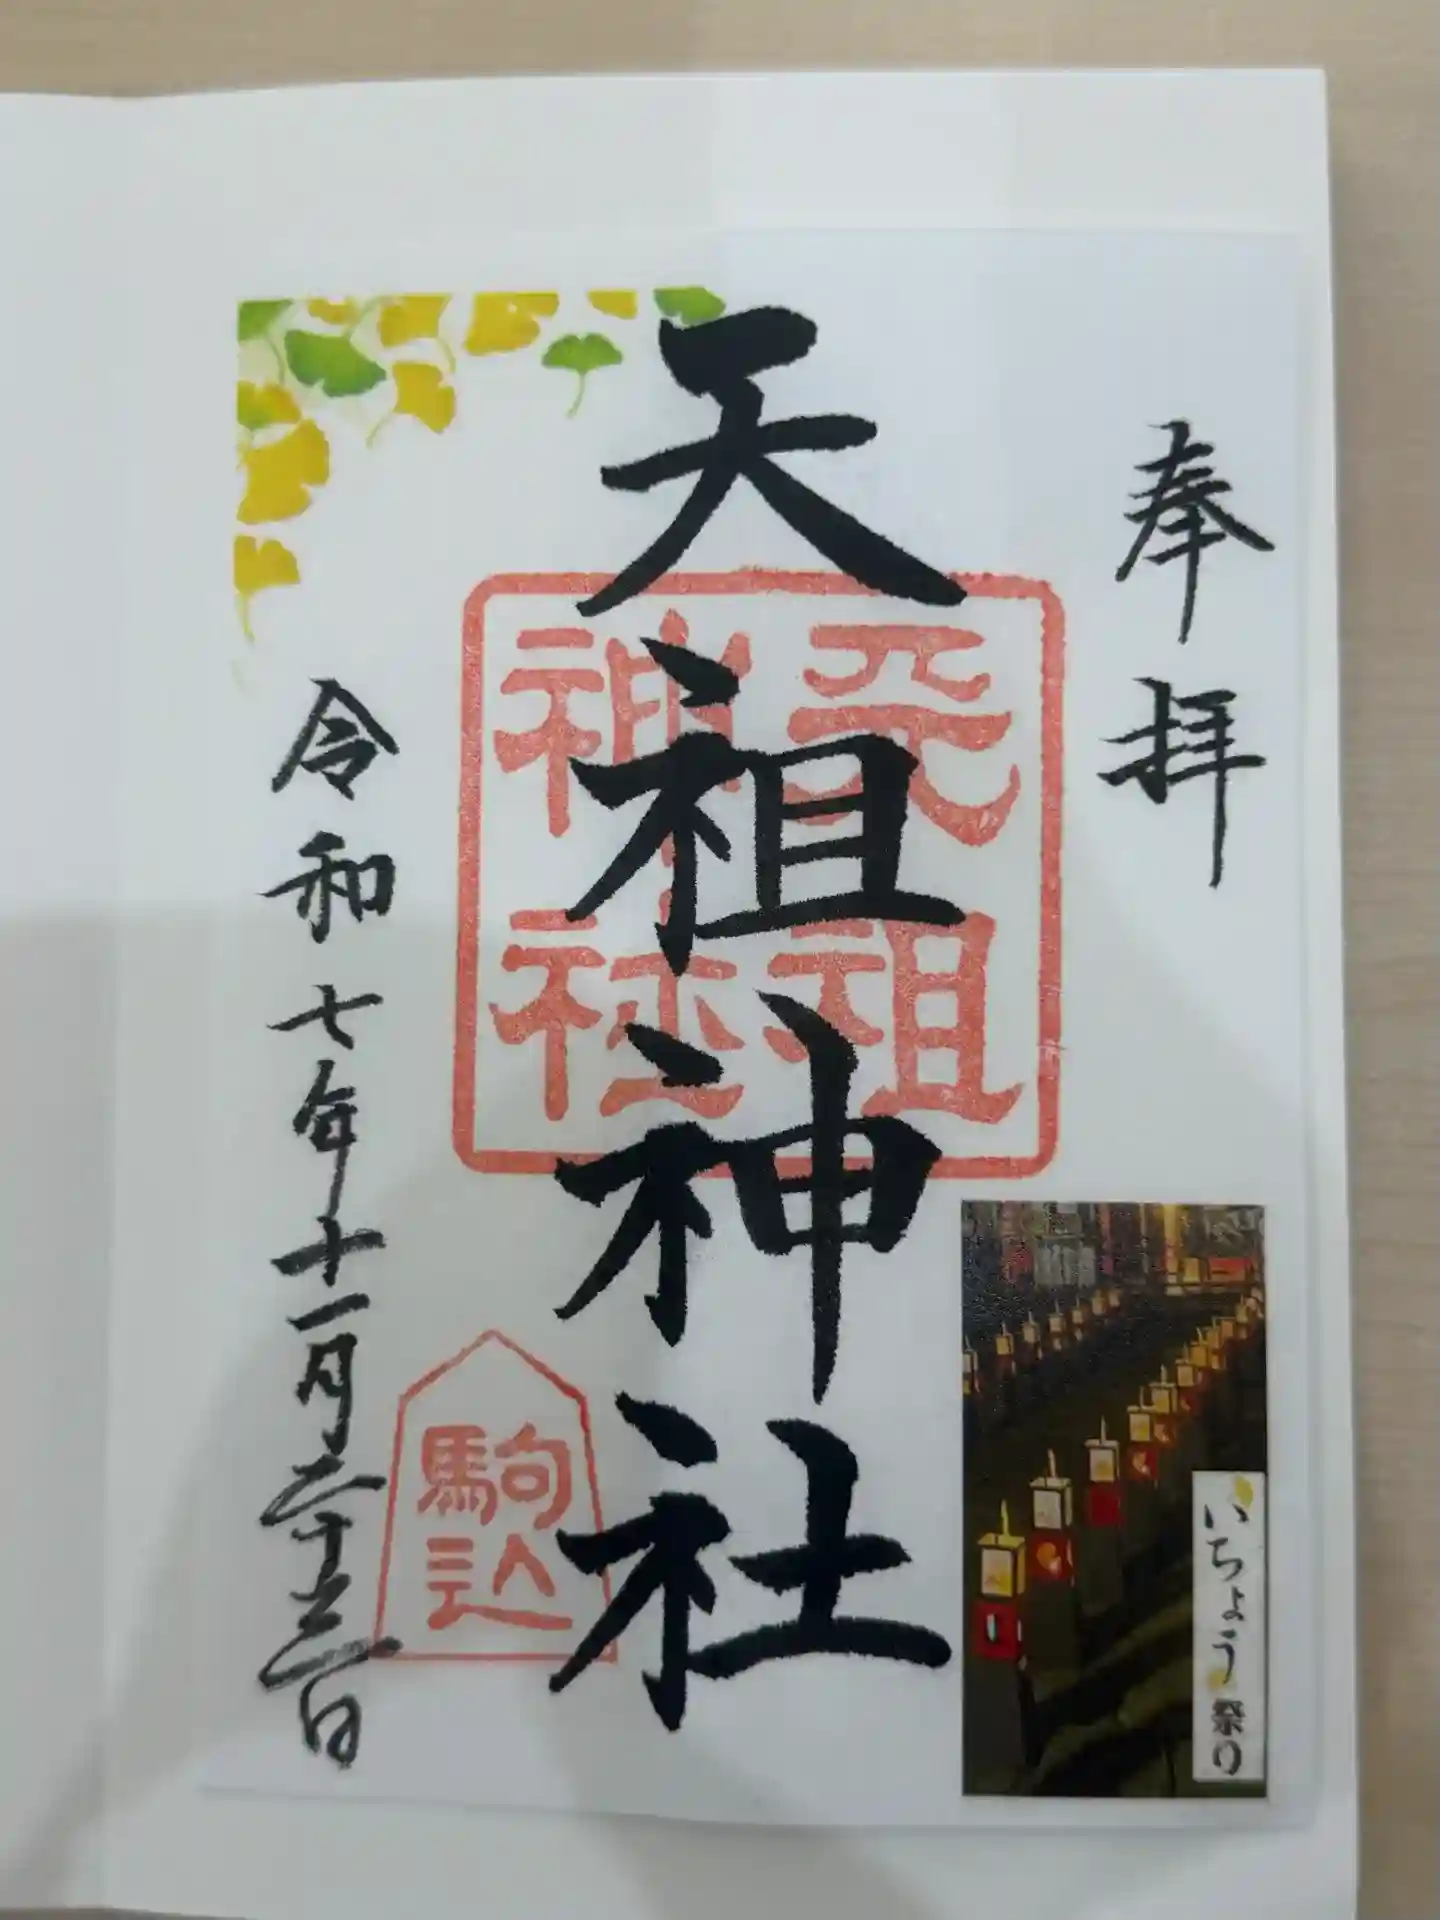 奉拝
天祖神社
天祖
神社
駒込
令和七年十一月二十三日
いちょう祭り